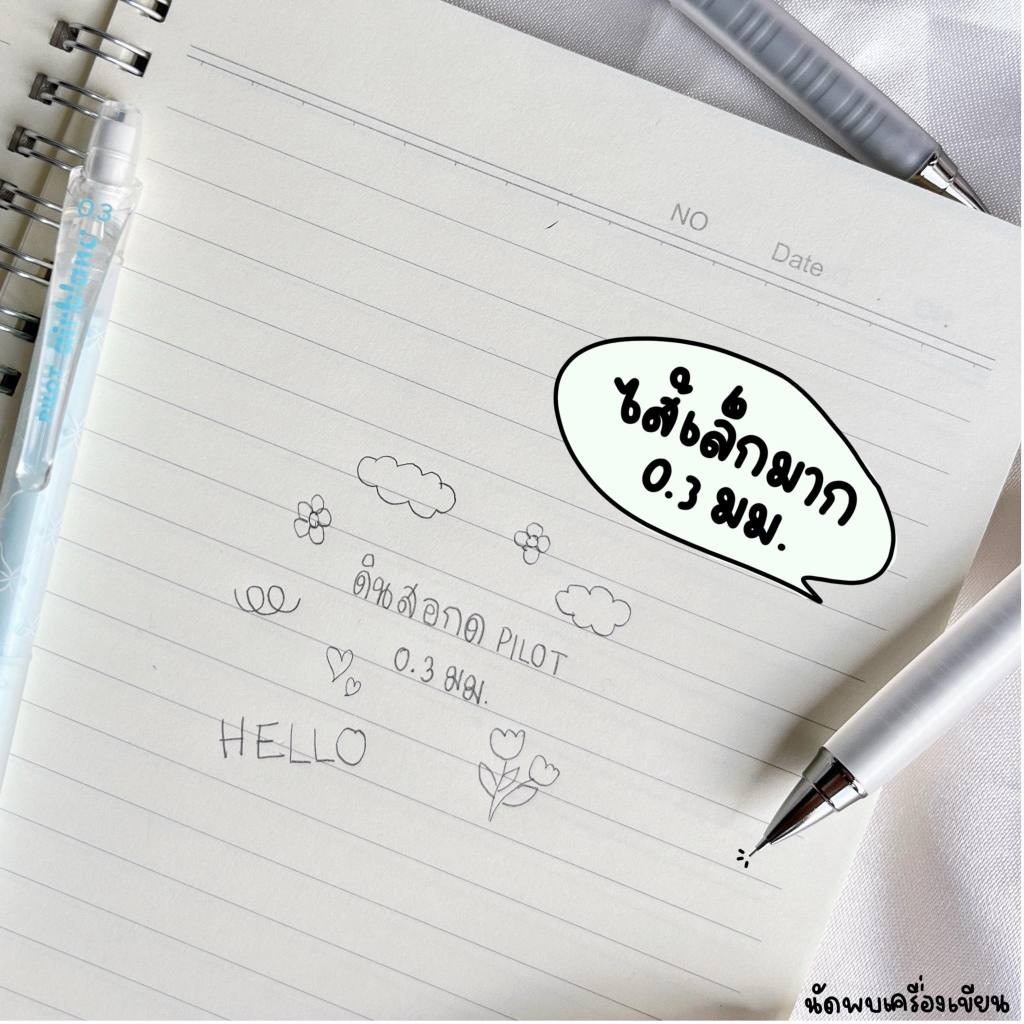 NO Date
ไส้เล็กมาก
0.3 มม.
0.3
PILOT Airblanc
ดินสอกด PILOT
0.3 มม.
HELLO
นัดพบเครื่องเขียน